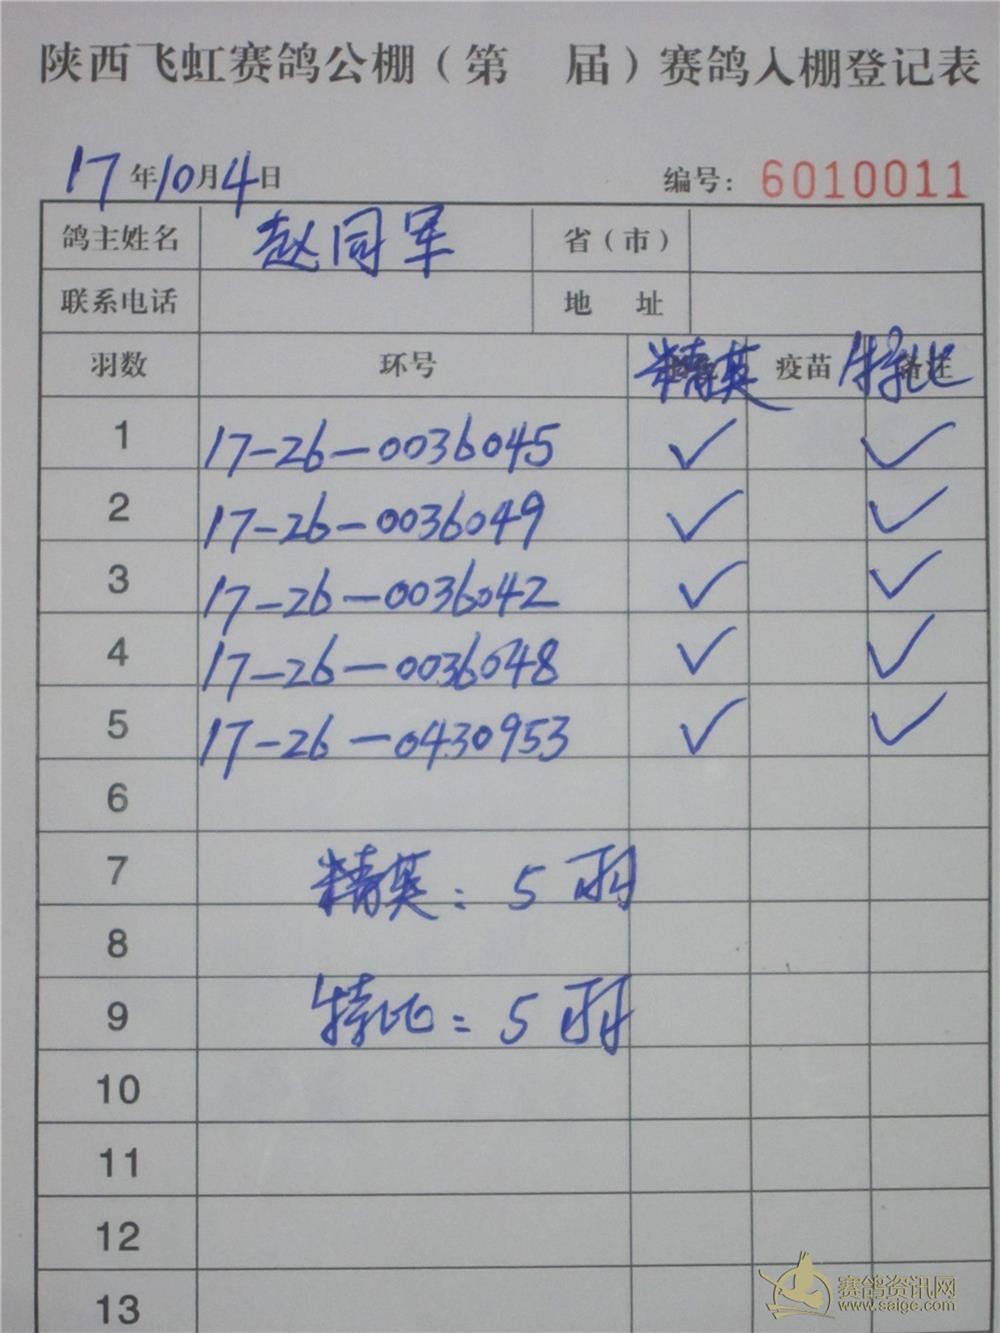 陕西飞虹赛鸽公棚（第 届）赛鸽入棚登记表
17年10月4日 编号：6010011
鸽主姓名 赵同军 省（市）
联系电话 地 址
羽数 环号 精英 疫苗 特比 备注
1 17-26-0036045 ✓ ✓
2 17-26-0036049 ✓ ✓
3 17-26-0036042 ✓ ✓
4 17-26-0036048 ✓ ✓
5 17-26-0430953 ✓ ✓
6
7 精英：5羽
8
9 特比：5羽
10
11
12
13
赛鸽资讯网
www.saigc.com